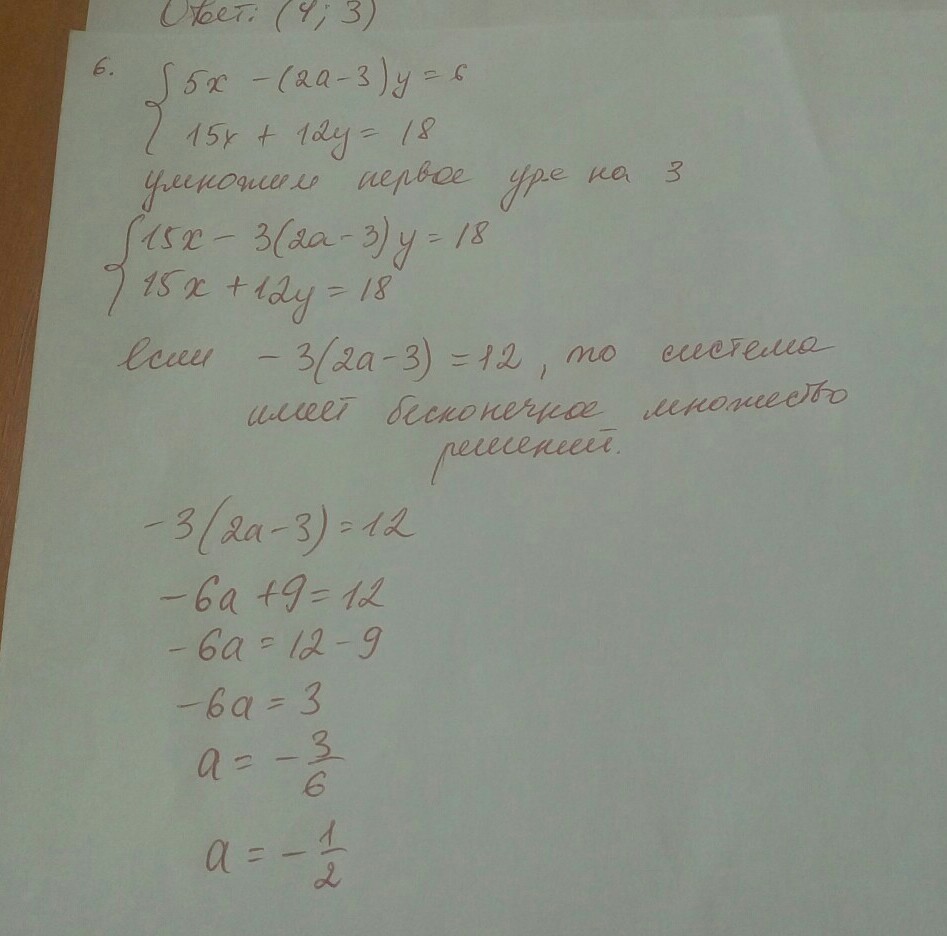 Ответ: (4; 3)
6. { 5x - (2a - 3)y = 6
15x + 12y = 18
умножим первое уре на 3
{ 15x - 3(2a - 3)y = 18
15x + 12y = 18
если - 3(2a - 3) = 12, то система
имеет бесконечное множество
решений.
-3(2a - 3) = 12
-6a + 9 = 12
-6a = 12 - 9
-6a = 3
a = - 3/6
a = - 1/2